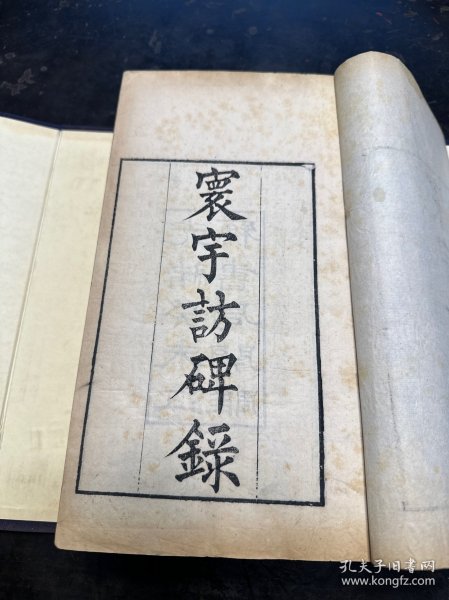 寰宇訪碑錄
孔夫子旧书网
www.kongfz.com